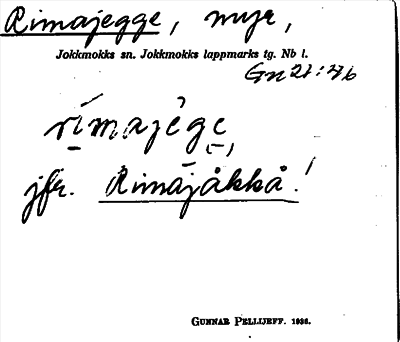 Rimajegge, myr,
Jokkmokks sn. Jokkmokks lappmarks tg. Nb l.
Gn 21:46
rímajège,
jfr. Rimajåkkå!
GUNNAR PELLIJEFF. 1936.